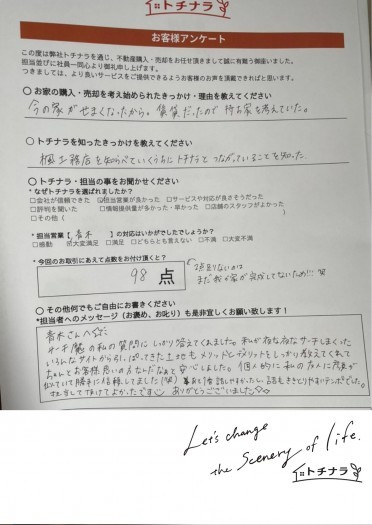 トチナラ
お客様アンケート
この度は弊社トチナラを通じ、不動産購入・売却をお任せ頂きまして誠に有難う御座いました。
担当並びに社員一同心より御礼申し上げます。
つきましては、より良いサービスをご提供できるようお客様のお声を頂戴できればと思います。
〇お家の購入・売却を考え始められたきっかけ・理由を教えてください
今の家がせまくなったから。賃貸だったので持ち家を考えていた。
〇トチナラを知ったきっかけを教えてください
楓工務店を知らべていくうちにトチナラとつながっていることを知った
〇トチナラ・担当の事をお聞かせください
*なぜトチナラを選ばれましたか?
□会社が信頼できた ☑担当営業が良かった □サービスや対応が良さそうだった
□評判を聞いた □情報提供量が多かった・早かった □店舗のスタッフがよかった
□その他（
*担当営業【青木 】の対応はいかがでしたでしょうか?
□感動 ☑大変満足 □満足 □どちらとも言えない □不満 □大変不満
*今回のお取引にあえて点数をお付け頂くと?
98 点
2点足りないのは
まだ我が家が完成してないため!!! 笑
〇その他何でもご自由にお書きください
*担当者へのメッセージ（お褒め、お叱り）も是非宜しくお願い致します!
青木さんへ
サーチ魔の私の質問にしっかり答えてくれました。私が夜な夜なサーチしまくった
いろんなサイトから引っぱってきた土地もメリットとデメリットをしっかり教えてくれて
ちゃんとお客様思いの方なんだなぁと安心しました。個人的に私の友人に
似ていて勝手に信頼してました(笑) 話しやすかったし、話もききとりやすいテンポでした。
担当して頂けてよかったです ありがとうございました
Let's change
the Scenery of life.
トチナラ